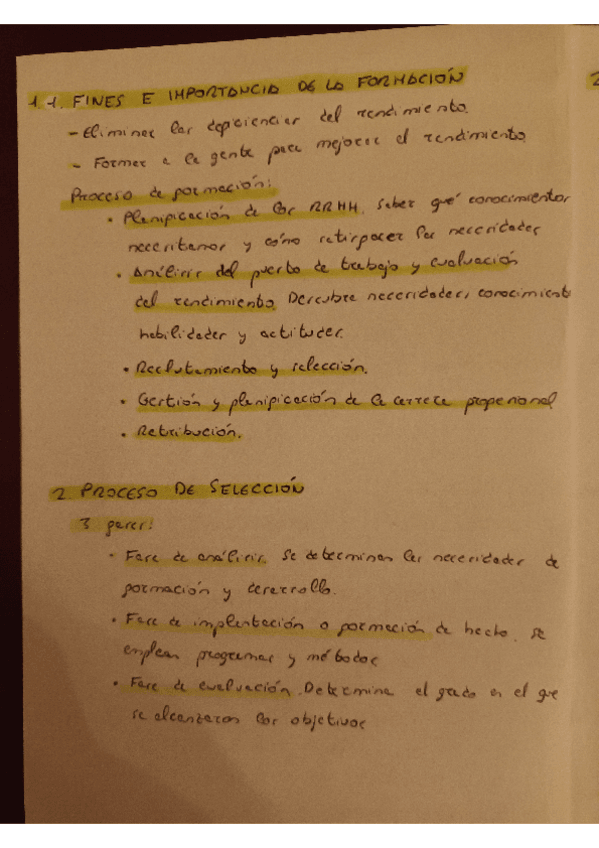 1.1. FINES E IMPORTANCIA DE LA FORMACIÓN
- Eliminar las deficiencias del rendimiento.
- Formar a la gente para mejorar el rendimiento
Proceso de formación:
• Planificación de los RRHH. Saber qué conocimientos
necesitamos y cómo satisfacer las necesidades
• Análisis del puesto de trabajo y evaluación
del rendimiento. Descubre necesidades, conocimient
habilidades y actitudes.
• Reclutamiento y selección.
• Gestión y planificación de la carrera profesional
• Retribución.
2. PROCESO DE SELECCIÓN
3 fases:
• Fase de análisis. Se determinan las necesidades de
formación y desarrollo.
• Fase de implantación o formación de hecho. Se
emplean programas y métodos
• Fase de evaluación. Determina el grado en el que
se alcanzaron los objetivos
2